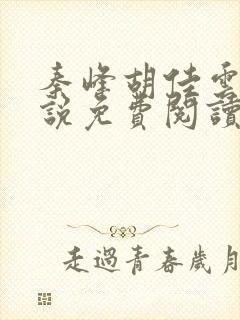 秦峰胡佳雲
說免費閱讀
走過青春歲月